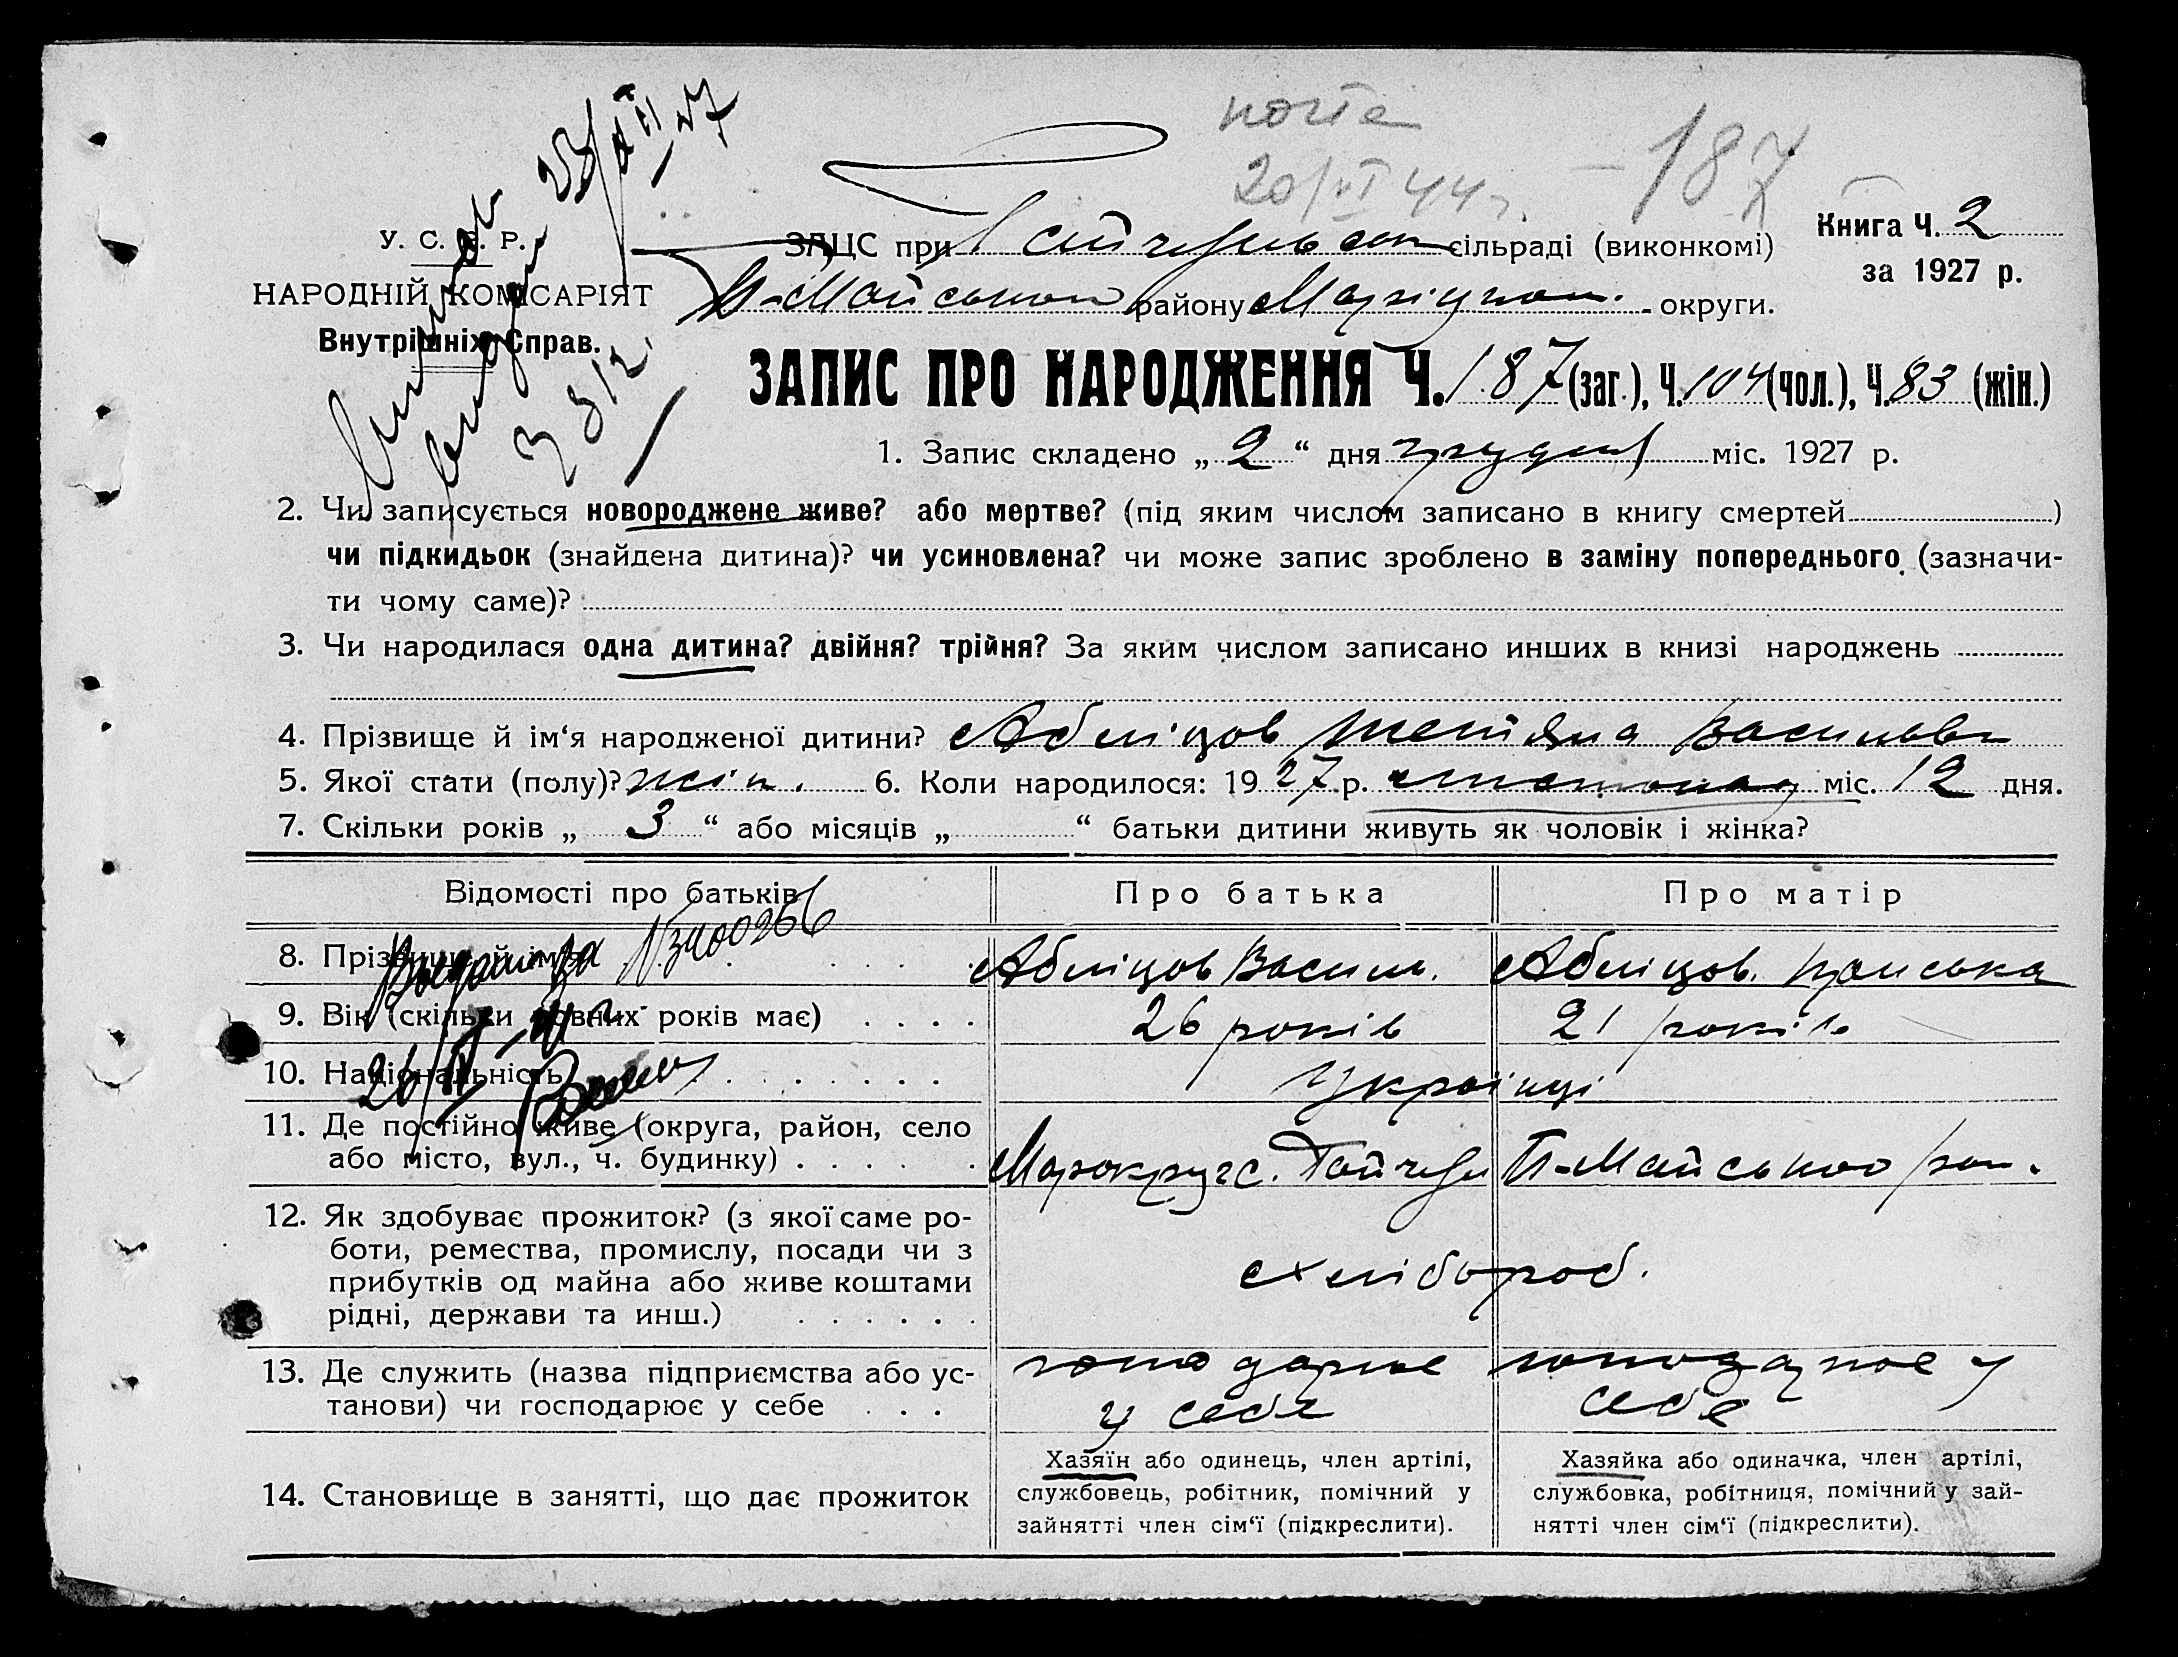 почта
20/VI 44 г. – 187
У. С. Р. Р.
НАРОДНІЙ КОМІСАРІЯТ
Внутрішніх Справ.
ЗАЦС при Гайчульськ сільраді (виконкомі)
П-Майського району Маріупол. округи.
Книга Ч. 2
за 1927 р.
ЗАПИС ПРО НАРОДЖЕННЯ Ч. 187 (заг.), Ч. 104 (чол.), Ч. 83 (жін.)
1. Запис складено „ 2 “ дня грудня міс. 1927 р.
2. Чи записується новороджене живе? або мертве? (під яким числом записано в книгу смертей )
чи підкидьок (знайдена дитина)? чи усиновлена? чи може запис зроблено в заміну попереднього (зазначи-
ти чому саме)?
3. Чи народилася одна дитина? двійня? трійня? За яким числом записано инших в книзі народжень
4. Прізвище й ім‘я народженої дитини? Абліцов Тетяна Василівн
5. Якої стати (полу)? жін. 6. Коли народилося: 19 27 р. листопад міс. 12 дня.
7. Скільки років „ 3 “ або місяців „ “ батьки дитини живуть як чоловік і жінка?
Відомості про батьків Про батька Про матір
8. Прізвище й ім‘я Абліцов Василь. Абліцов.
9. Вік (скільки повних років має) 26 років 21 років
10. Національність Українці
11. Де постійно живе (округа, район, село
або місто, вул., ч. будинку) Марокруг с. Гайчул П-Майського рай.
12. Як здобуває прожиток? (з якої саме ро-
боти, ремества, промислу, посади чи з
прибутків од майна або живе коштами
рідні, держави та инш.) хлібороб.
13. Де служить (назва підприємства або ус-
танови) чи господарює у себе господарює у себе господарює у себе
14. Становище в занятті, що дає прожиток
Хазяїн або одинець, член артілі,
службовець, робітник, помічний у
зайнятті член сім‘ї (підкреслити).
Хазяйка або одиначка, член артілі,
службовка, робітниця, помічний у зай-
нятті член сім‘ї (підкреслити).